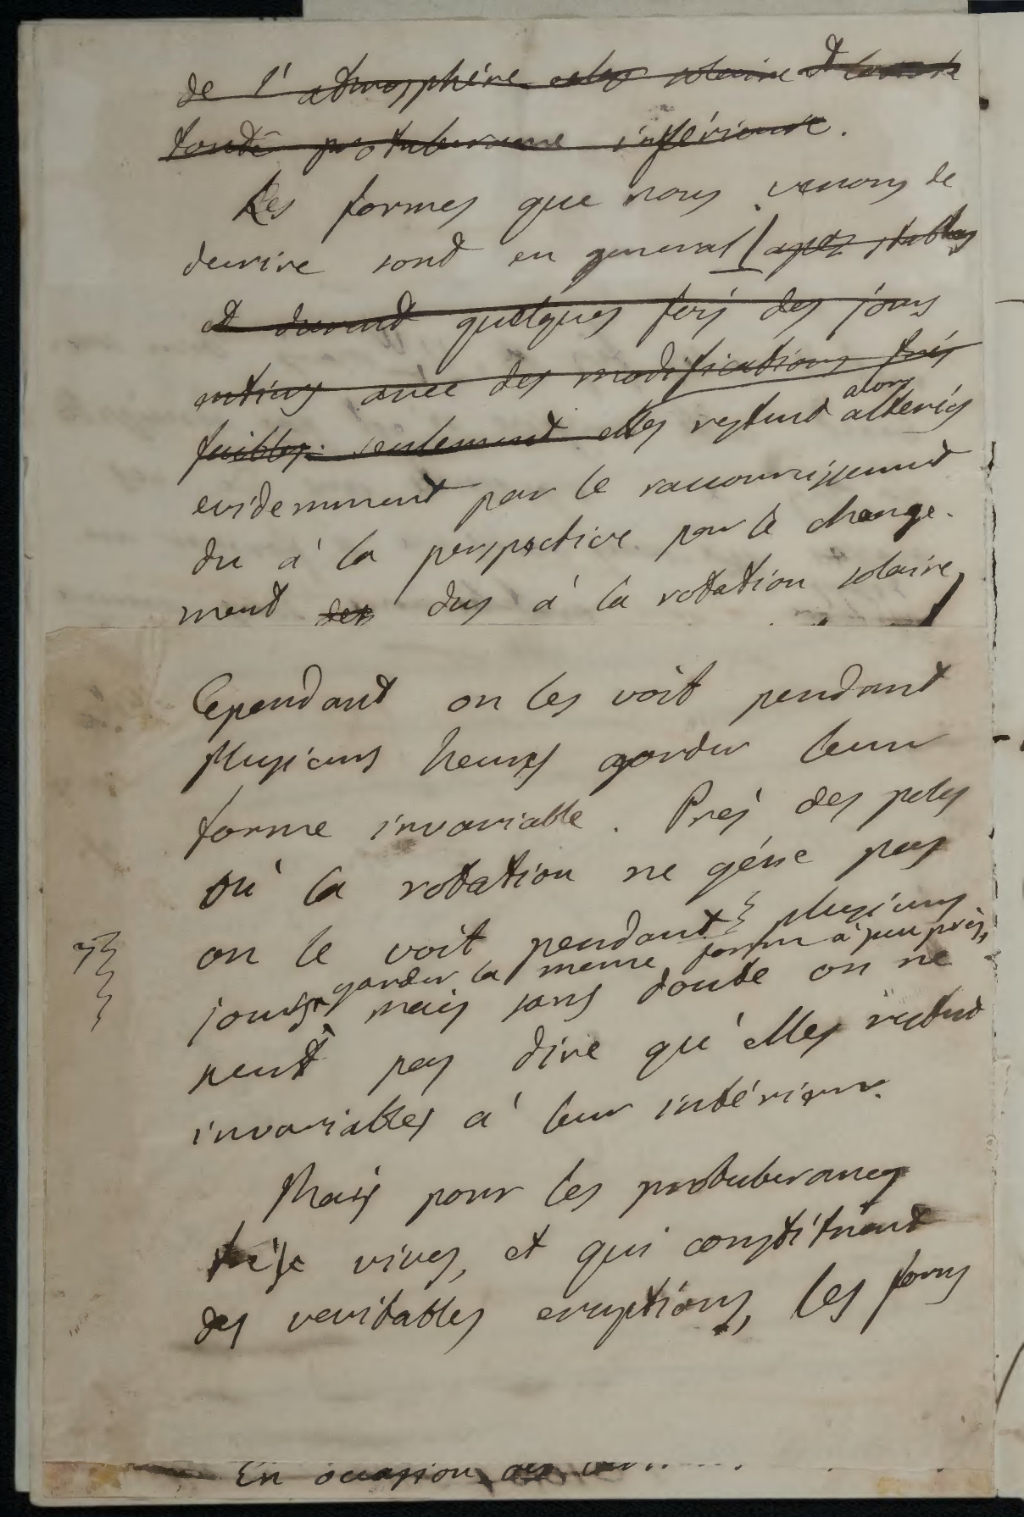 de l'atmosphère solaire et
toute protuberance inférieure.
Les formes que nous venons de
decrire sont en general assez stables
et durent quelques fois des jours
entiers avec des modifications très
faibles. seulement elles restent alors alterées
evidemment par le raccourcissement
du à la perspective par le change-
ment des dus à la rotation solaire,
Cependant on les voit pendant
plusieurs heures garder leur
forme invariable. Près des poles
où la rotation ne gène pas
on le voit pendant plusieurs
jours garder la meme forme à peu près,
mais sans doute on ne
peut pas dire qu'elles restent
invariables à leur intérieur.
Mais pour les protuberances
très vives, et qui constituent
des veritables eruptions, les forms
En occasion